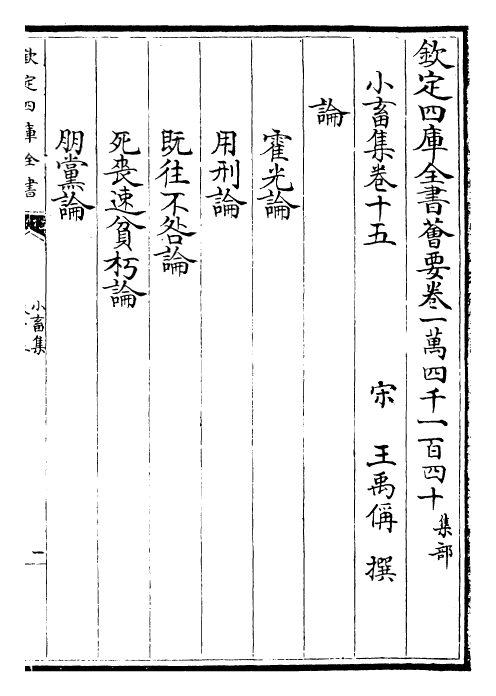 欽定四庫全書薈要卷一萬四千一百四十 集部
小畜集卷十五 宋 王禹偁 撰
論
霍光論
用刑論
既往不咎論
死喪速貧朽論
朋黨論
欽定四庫全書
小畜集